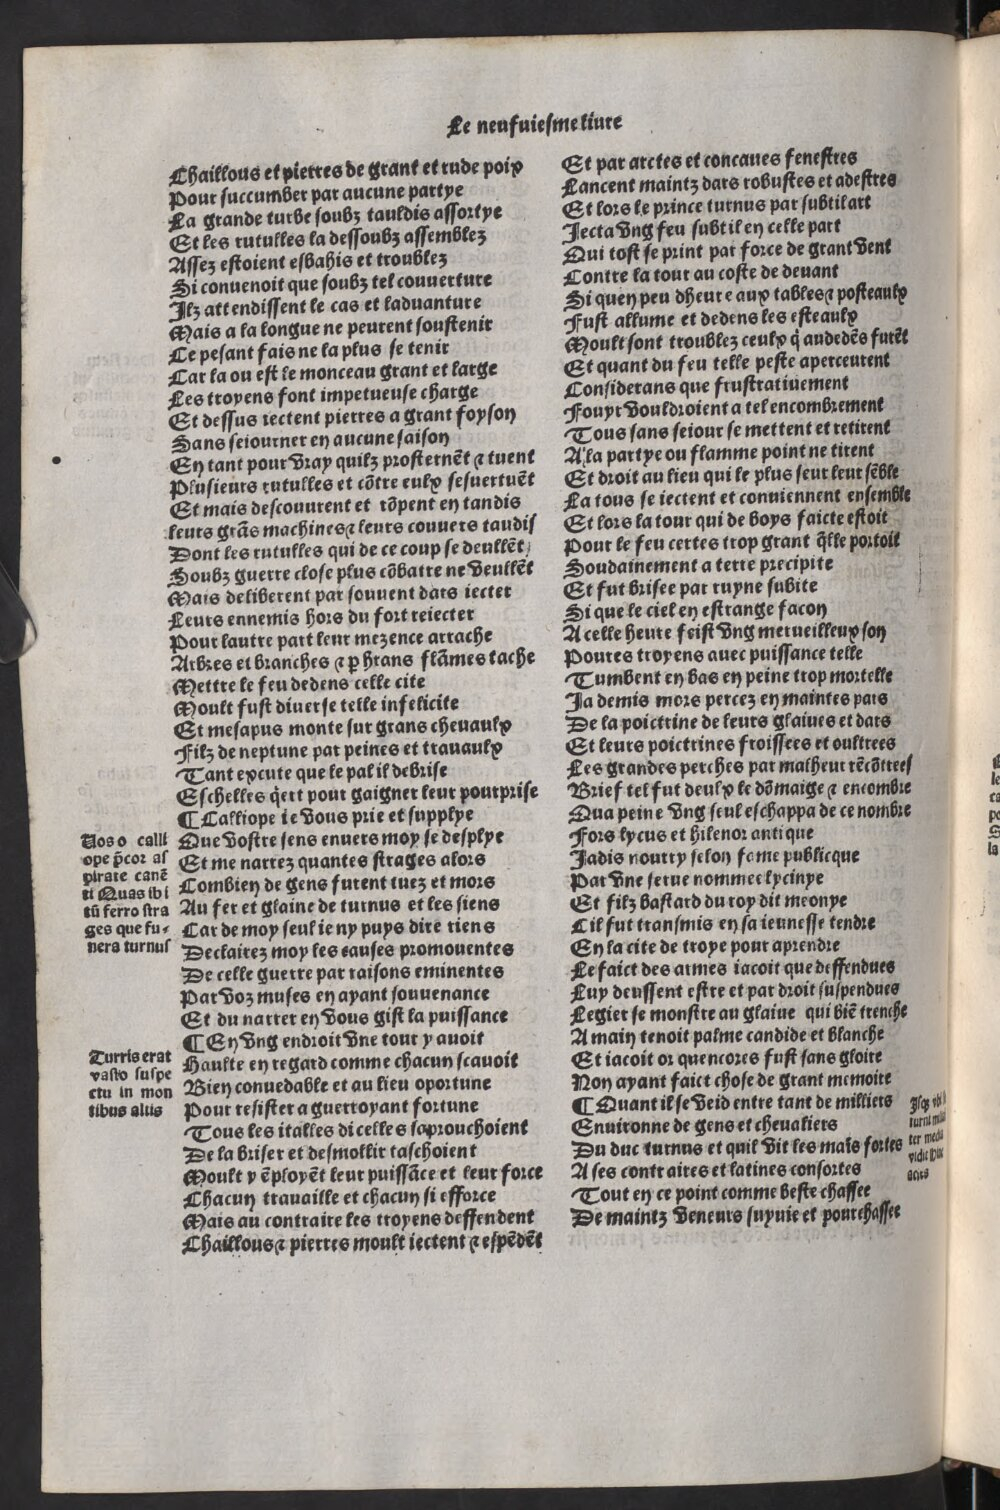 Le neufuiesme liure
Chaillous et pierres de grant et rude poix
Pour succumber par aucune partye
La grande turbe soubz tauldis assortye
Et les rutulles la dessoubz assemblez
Assez estoient esbahis et troublez
Si conuenoit que soubz tel couuerture
Ilz attendissent le cas et laduanture
Mais a la longue ne peurent soustenir
Ce pesant fais ne la plus se tenir
Car la ou est le monceau grant et large
Les troyens font impetueuse charge
Et dessus iectent pierres a grant foyson
Sans seiourner en aucune saison
En tant pour vray quilz prosternẽt ⁊ tuent
Plusieurs rutulles et cõtre eulx sesuertuẽt
Et mais descouurent et rõpent en tandis
leurs grãs machines⁊ leurs couuers taudis
Dont les rutulles qui de ce coup se deullẽt
Soubz guerre close plus cõbatre ne veullẽt
Mais deliberent par souuent dars iecter
Leurs ennemis hors du fort reiecter
Pour lautre part leur mezence attache
Arbres et branches ⁊ ꝑ hrans flãmes tache
Mettre le feu dedens celle cite
Moult fust diuerse telle infelicite
Et mesapus monte sur grans cheuaulx
Filz de neptune par peines et trauaulx
Tant excute que le pal il debrise
Eschelles q̃ert pour gaigner leur pourprise
¶ Calliope ie vous prie et supplye
Que vostre sens enuers moy se desplye
Et me narrez quantes strages alors
Combien de gens furent tuez et mors
Au fer et glaine de turnus et les siens
Car de moy seul ie ny puys dire riens
Declairez moy les causes promouentes
De celle guerre par raisons eminentes
Par voz muses en ayant souuenance
Et du narrer en vous gist la puissance
¶ En vng endroit vne tour y auoit
Haulte en regard comme chacun scauoit
Bien conuedable et au lieu oportune
Pour resister a guerroyant fortune
Tous les italles dicelles saprouchoient
De la briser et desmollir taschoient
Moult y ẽployẽt leur puissãce et leur force
Chacun trauaille et chacun si efforce
Mais au contraire les troyens deffendent
Chaillous⁊ pierres moult iectent ⁊ espẽdẽt
Vos o calli
ope p̃cor as
pirate canẽ
ti Quas ibi
tũ ferro stra
ges que fu-
nera turnus
Turris erat
vasto suspe
ctu in mon
tibus altis
Et par arctes et concaues fenestres
Lancent maintz dars robustes et adestres
Et lors le prince turnus par subtil art
Jecta vng feu subtil en celle part
Qui tost se print par force de grant vent
Contre la tour au coste de deuant
Si quen peu dheure aux tables⁊ posteaulx
Fust allume et dedens les esteaulx
Moult sont troublez ceulx q̃ audedẽs furẽt
Et quant du feu telle peste aperceurent
Considerans que frustratiuement
Fouyr vouldroient a tel encombrement
Tous sans seiour se mettent et retirent
A la partye ou flamme point ne tirent
Et droit au lieu qui le plus seur leur sẽble
La tous se iectent et conuiennent ensemble
Et lors la tour qui de boys faicte estoit
Pour le feu certes trop grant q̃lle portoit
Soudainement a terre precipite
Et fut brisee par ruyne subite
Si que le ciel en estrange facon
A celle heure feist vng merueilleux son
Poures troyens auec puissance telle
Tumbent en bas en peine trop mortelle
Ja demis mors percez en maintes pars
De la poictrine de leurs glaiues et dars
Et leurs poictrines froissees et oultrees
Les grandes perches par malheur rẽcõtrees
Brief tel fut deulx le dõmaige ⁊ encombre
Qua peine vng seul eschappa de ce nombre
Fors lycus et hilenor antique
Jadis nourry selon fame publicque
Par vne serue nommee lycinye
Et filz bastard du roy dit meonye
Cil fut transmis en sa ieunesse tendre
En la cite de troye pour aprendre
Le faict des armes iacoit que deffendues
Luy deussent estre et par droit suspendues
Legier se monstre au glaiue qui biẽ trenche
A main tenoit palme candide et blanche
Et iacoit or quencores fust sans gloire
Non ayant faict chose de grant memoire
¶ Quant il se veid entre tant de milliers
Enuironne de gens et cheualiers
Du duc turnus et quil vit les mais fortes
A ses contraires et latines consortes
Tout en ce point comme beste chassee
De maintz veneurs suyuie et pourchassee
Isq; vbi
turni
ter media
vidit
acies